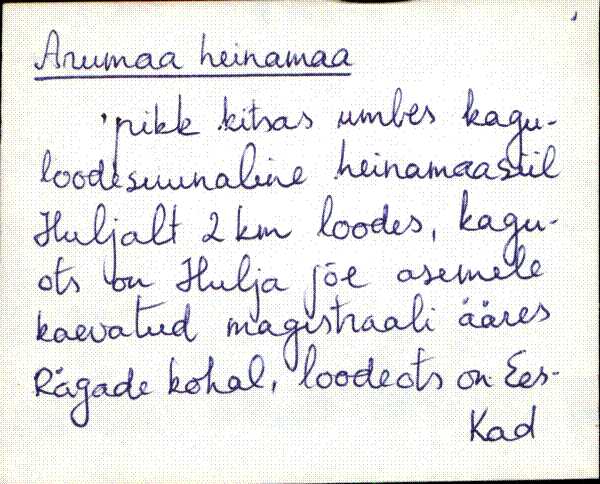 Arumaa heinamaa
pikk kitsas umbes kagu-
loodesuunaline heinamaasiil
Huljalt 2 km loodes, kagu-
ots on Hulja jõe asemele
kaevatud magistraali ääres
Rägade kohal, loodeots on Ees-
Kad